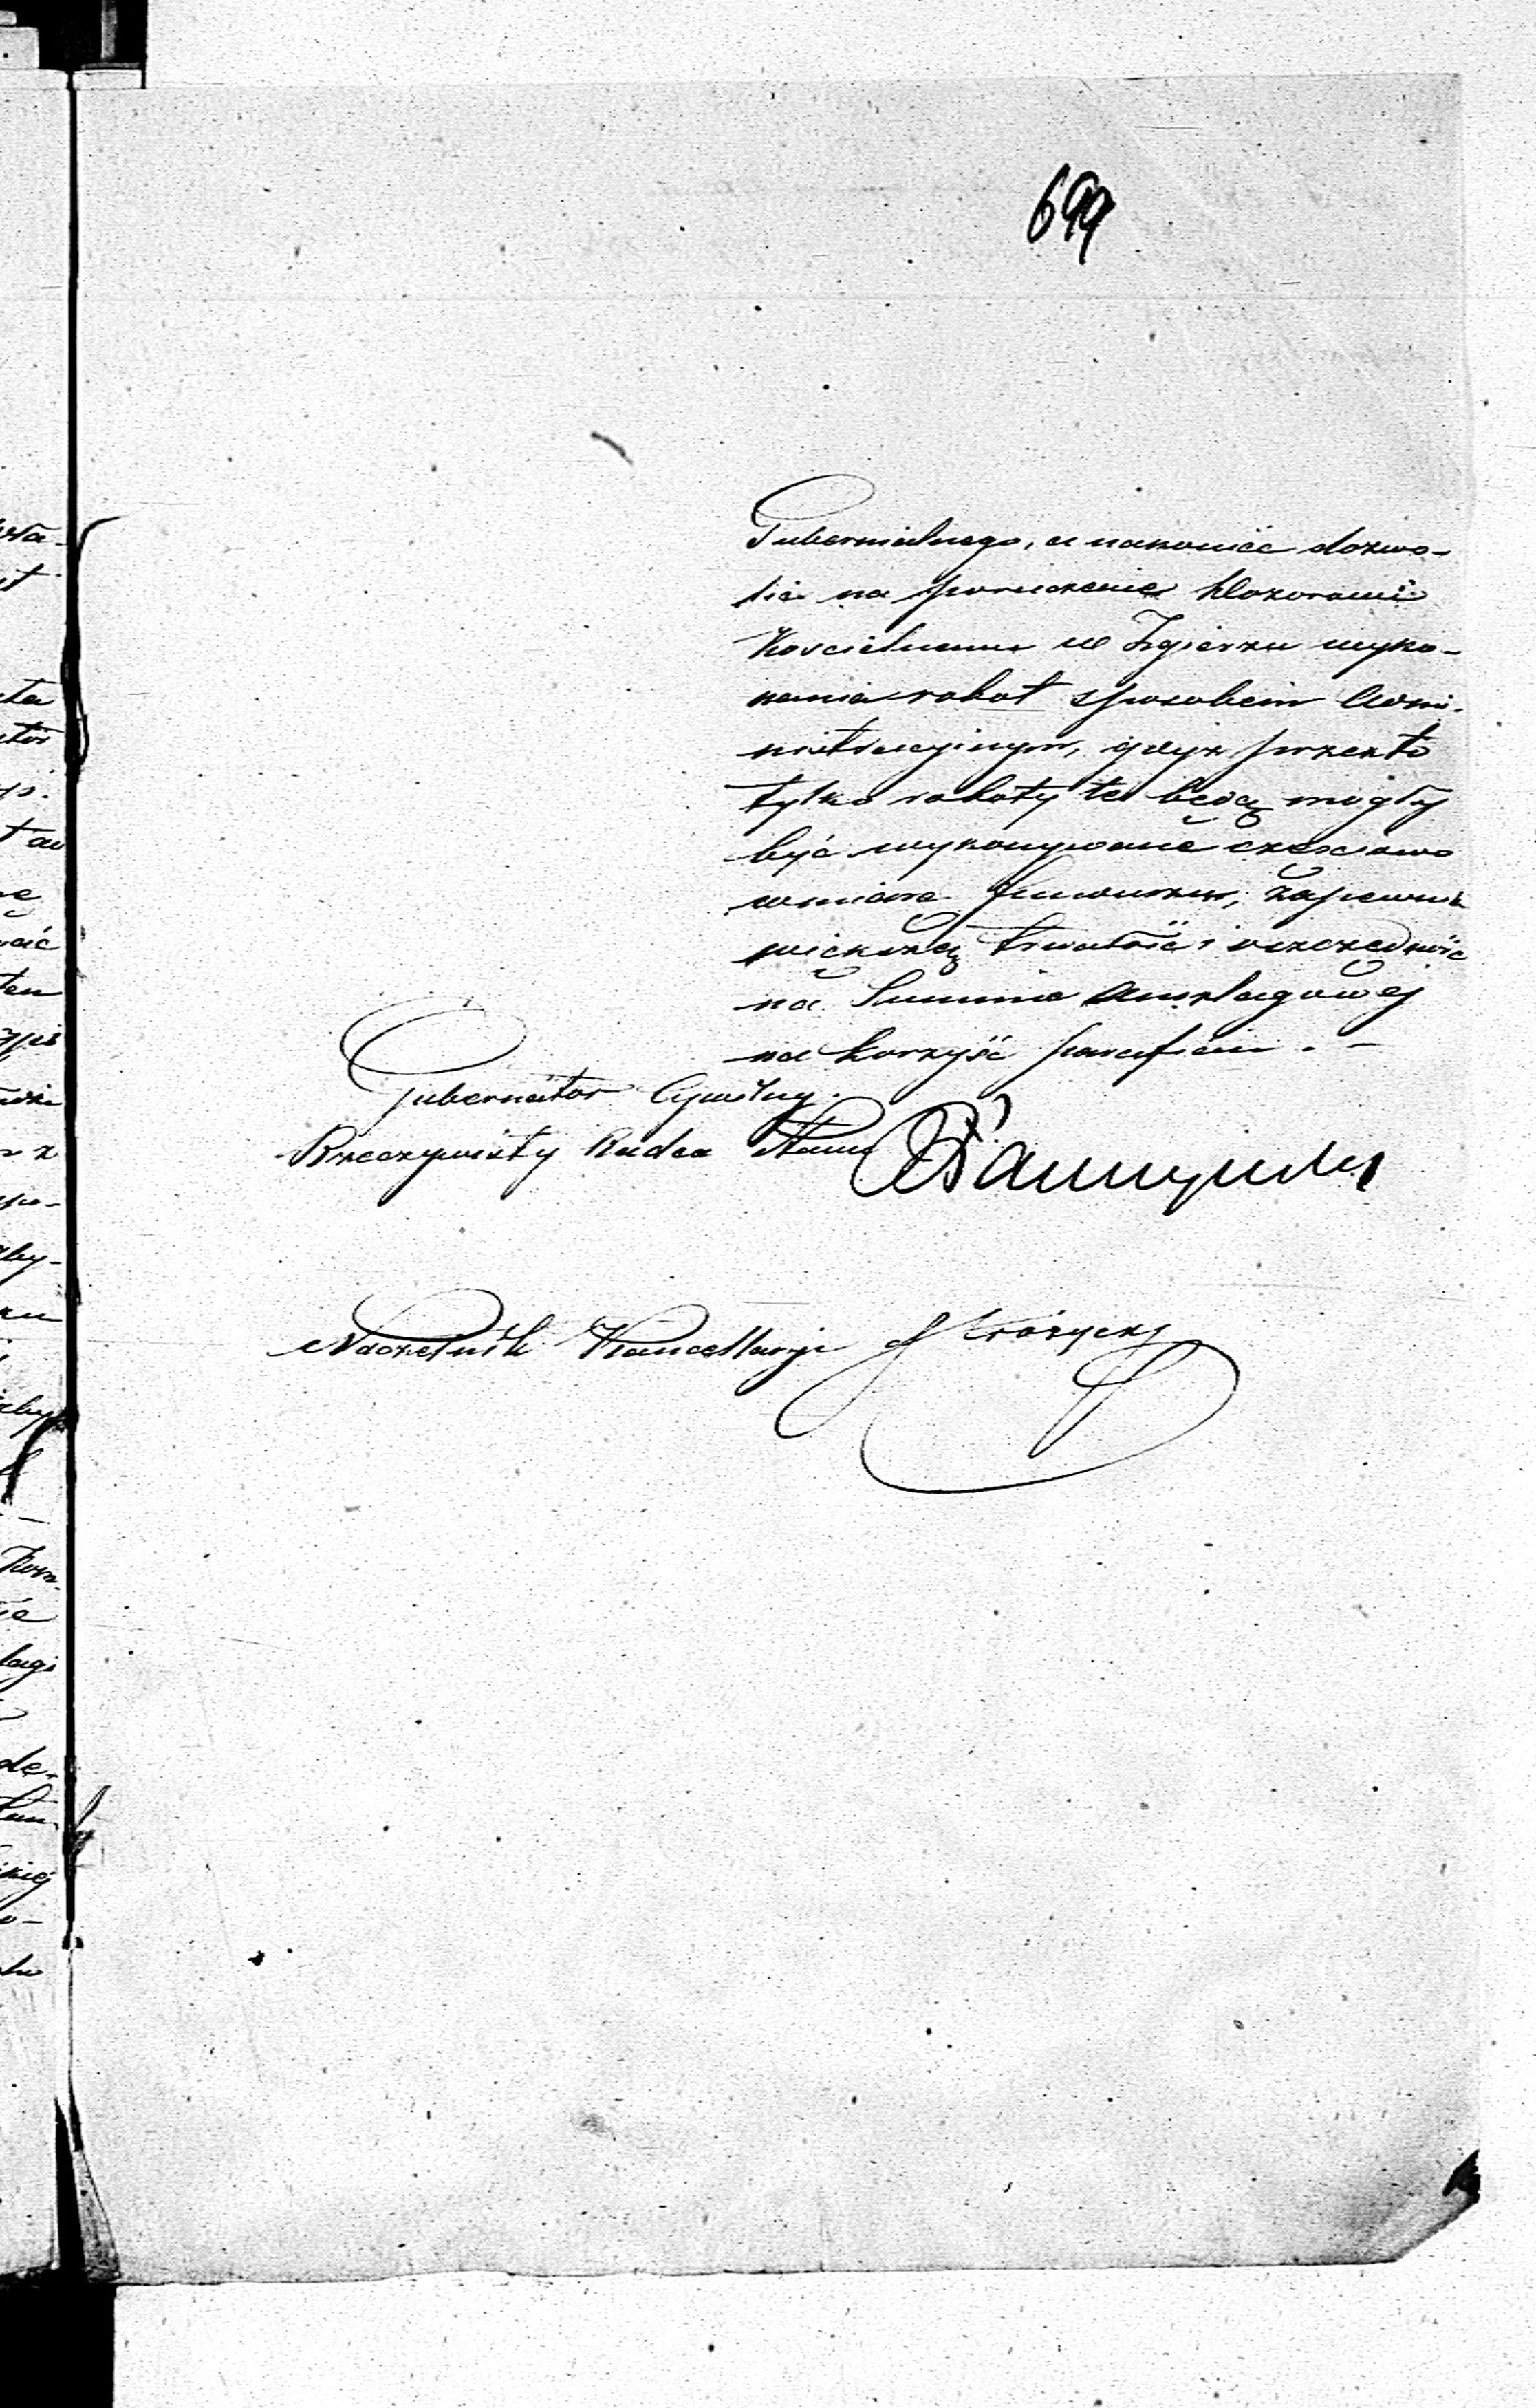 699
Gubernialnego, a nakoniec dozwo-
lić na poruczenie Dozorowi
Kościelnemu w Zgierzu wyko-
nania robot sposobem Admi-
nistracyjnym, gdyż przez to
tylko roboty te będą mogły
być wykonywane częściowo
w miarę funduszu, zapewnić
większą trwałość i oszczędność
na Summie Anszlagowej
na korzyść parafian. –
Gubernator Cywilny.
Rzeczywisty Radca Stanu
Naczelnik Kancellaryi